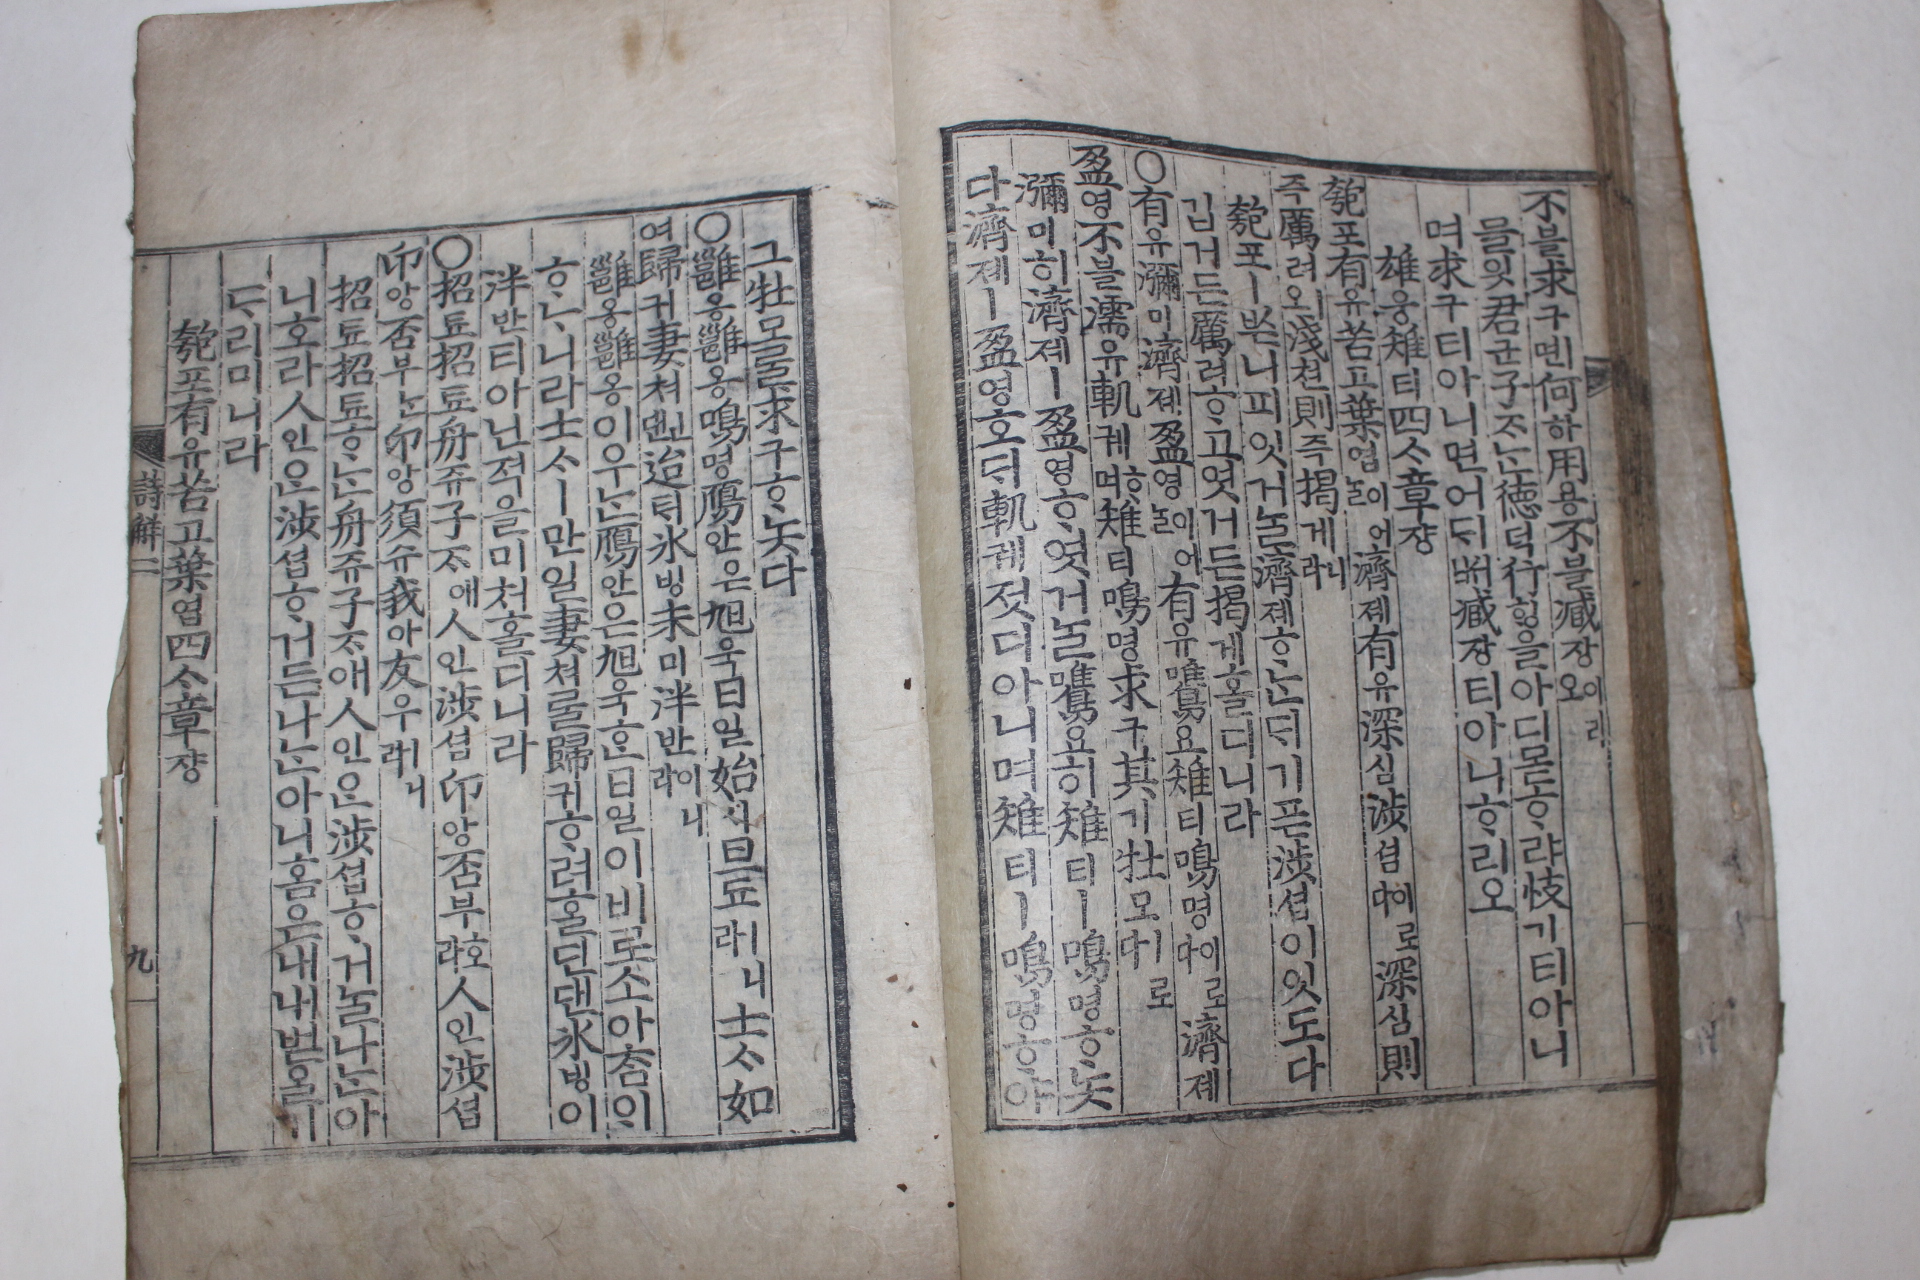 不블求구멘何하用용不블臧장이오래
믈읫君군子ᄌᆞᄂᆞᆫ德덕行ᄒᆡᆼ을아디몯ᄒᆞ랴忮기티아니
며求구티아니면어ᄃᆡ써臧장티아니ᄒᆞ리오
雄웅雉티四ᄉᆞ章쟝
匏포有유苦고葉엽이어ᄂᆞᆯ濟졔有유深심涉셥이로다深심則
즉厲려ㅣ오淺쳔則즉揭게니라
匏포ㅣᄡᅳᆫ니피잇거ᄂᆞᆯ濟졔ᄒᆞᄂᆞᆫᄃᆡ기픈涉셥이잇도다
깁거든厲려ᄒᆞ고엿거든揭게홀디니라
○有유瀰미濟졔盈영이어ᄂᆞᆯ有유鷕요雉티鳴명이로다濟졔
盈영不블濡유軌궤ᄒᆞ며雉티鳴명求구其기牡모ㅣ로다
瀰미히濟졔ㅣ盈영ᄒᆞ엿거ᄂᆞᆯ鷕요히雉티ㅣ鳴명ᄒᆞ놋
다濟졔ㅣ盈영호ᄃᆡ軌궤젓디아니며雉티ㅣ鳴명ᄒᆞ야
그牡모ᄅᆞᆯ求구ᄒᆞ놋다
○雝옹雝옹鳴명鴈안은旭욱日일始시旦됴ㅣ니라士ᄉᆞ如
여歸귀妻쳐댄인迨ᄐᆡ氷빙未미泮반이니라
雝옹雝옹이우ᄂᆞᆫ鴈안은旭욱ᄒᆞᆫ日일이비로소아ᄎᆞᆷ이
ᄒᆞᄂᆞ니라士ᄉᆞㅣ만일妻쳐ᄅᆞᆯ歸귀ᄒᆞ려홀딘댄氷빙이
泮반티아닌적을미처홀디니라
○招됴招됴舟쥬子ᄌᆞ애人인涉셥卬앙否부호라人인涉셥
卬앙否부ᄂᆞᆫ卬앙須슈我아友우ㅣ니라
招됴招됴ᄒᆞᄂᆞᆫ舟쥬子ᄌᆞ애人인은涉셥ᄒᆞ거ᄂᆞᆯ나ᄂᆞᆫ아
니호라人인은涉셥ᄒᆞ거든나ᄂᆞᆫ아니홈은내내벋올기
ᄃᆞ리미니라
匏포有유苦고葉엽四ᄉᆞ章쟝
詩解二 九